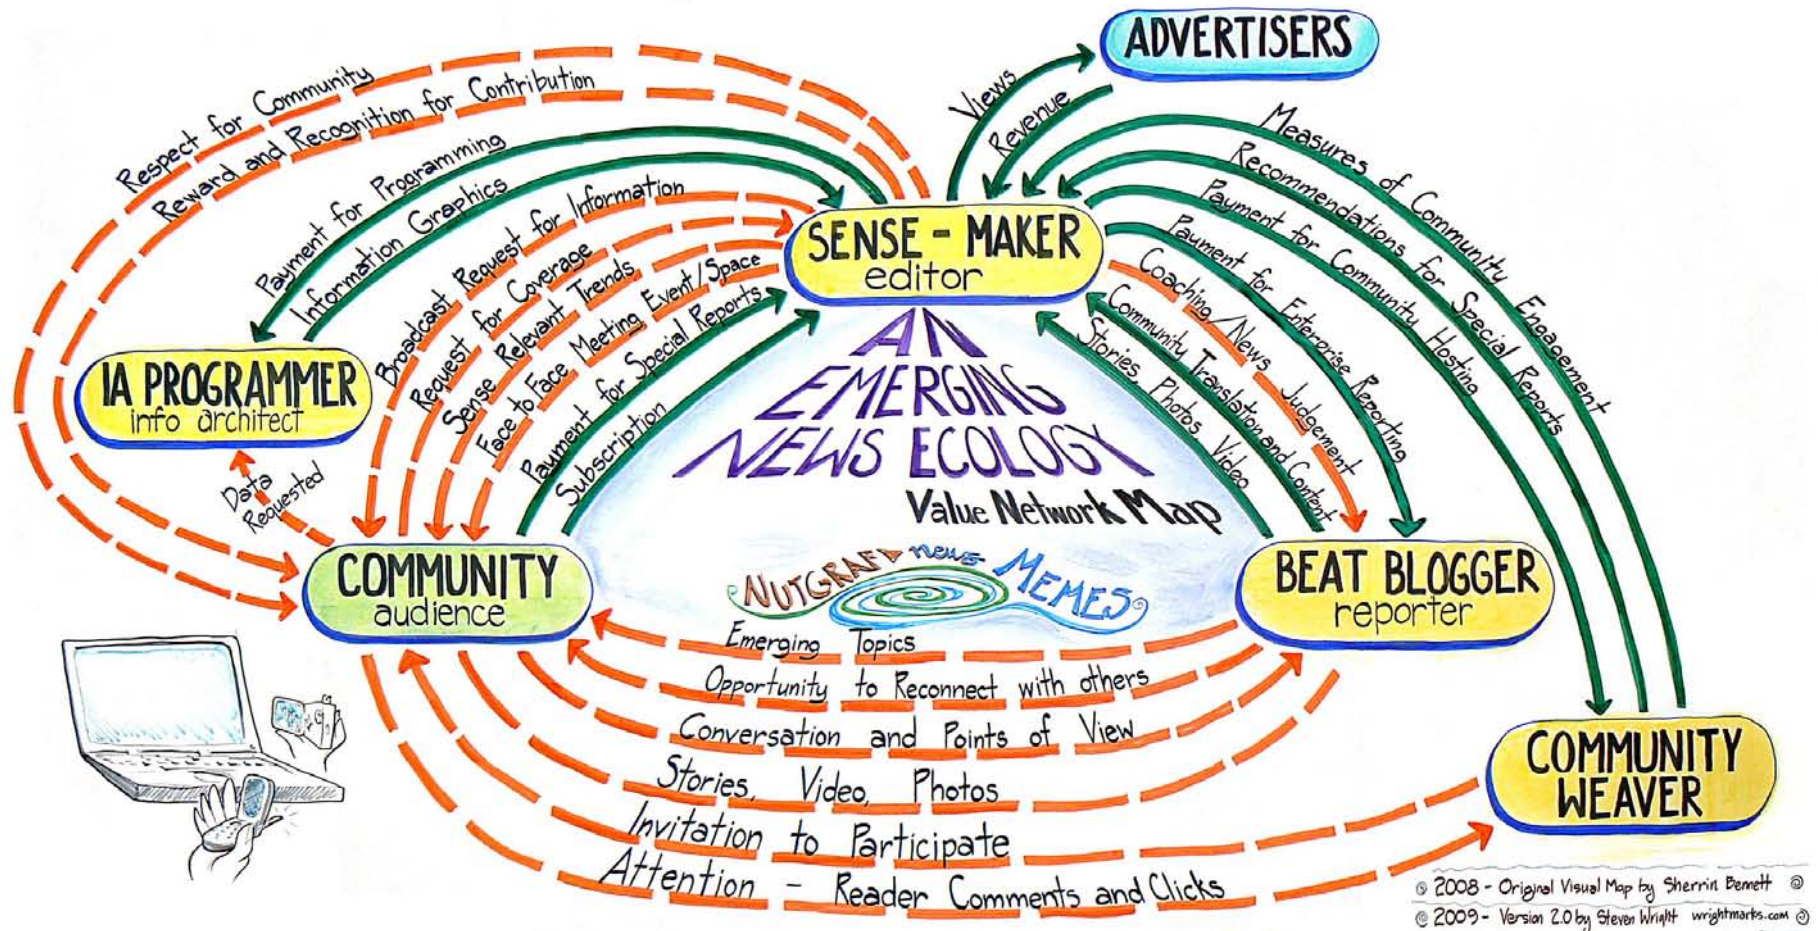 ADVERTISERS
Views
Revenue
Respect for Community
Reward and Recognition for Contribution
Payment for Programming
Information Graphics
Broadcast Request for Information
Request for Coverage
Sense Relevant Trends
Face to Face Meeting Event/Space
Payment for Special Reports
Subscription
SENSE-MAKER
editor
Measures of Community Engagement
Recommendations for Special Reports
Payment for Community Hosting
Payment for Enterorise Reporting
Coaching/News Judgement
Community Translation and Content
Stories, Photos, Video
IA PROGRAMMER
info architect
Data
Requested
AN
EMERGING
NEWS ECOLOGY
Value Network Map
NUTGRAF news MEMES
COMMUNITY
audience
BEAT BLOGGER
reporter
Emerging Topics
Opportunity to Reconnect with others
Conversation and Points of View
Stories, Video, Photos
Invitation to Participate
Attention - Reader Comments and Clicks
COMMUNITY
WEAVER
© 2008 - Original Visual Map by Sherrin Bennett
© 2009 - Version 2.0 by Steven Wright wrightmarks.com